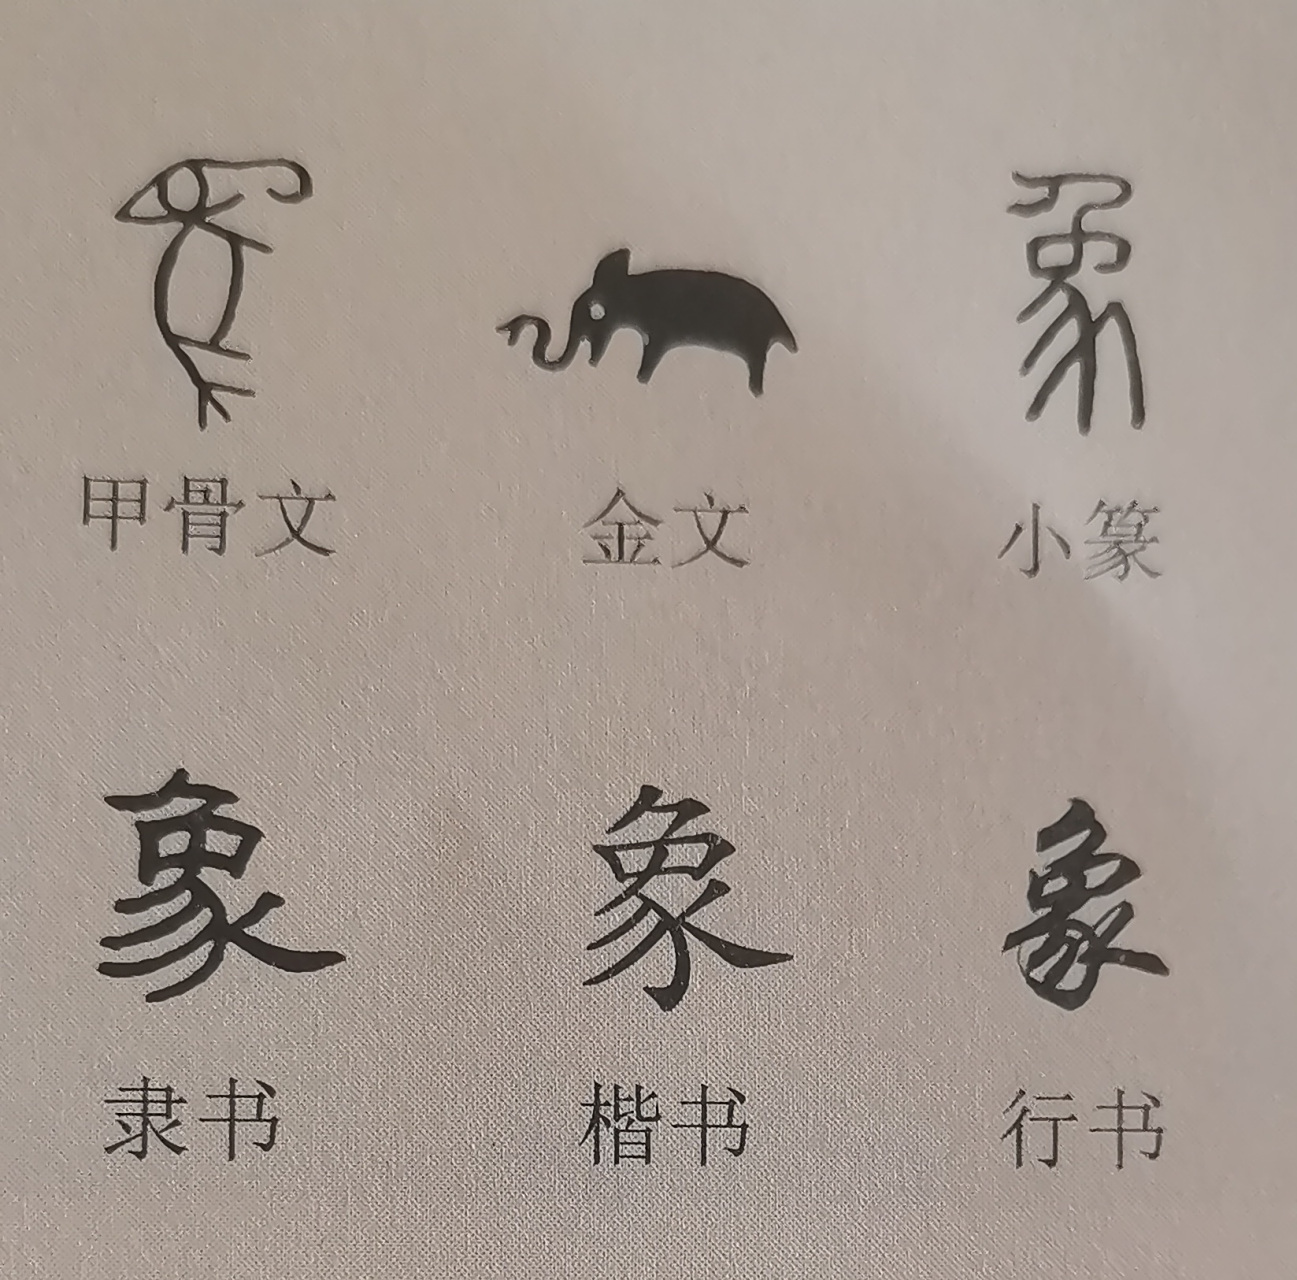 象 象 象
甲骨文 金文 小篆
象 象 象
隶书 楷书 行书